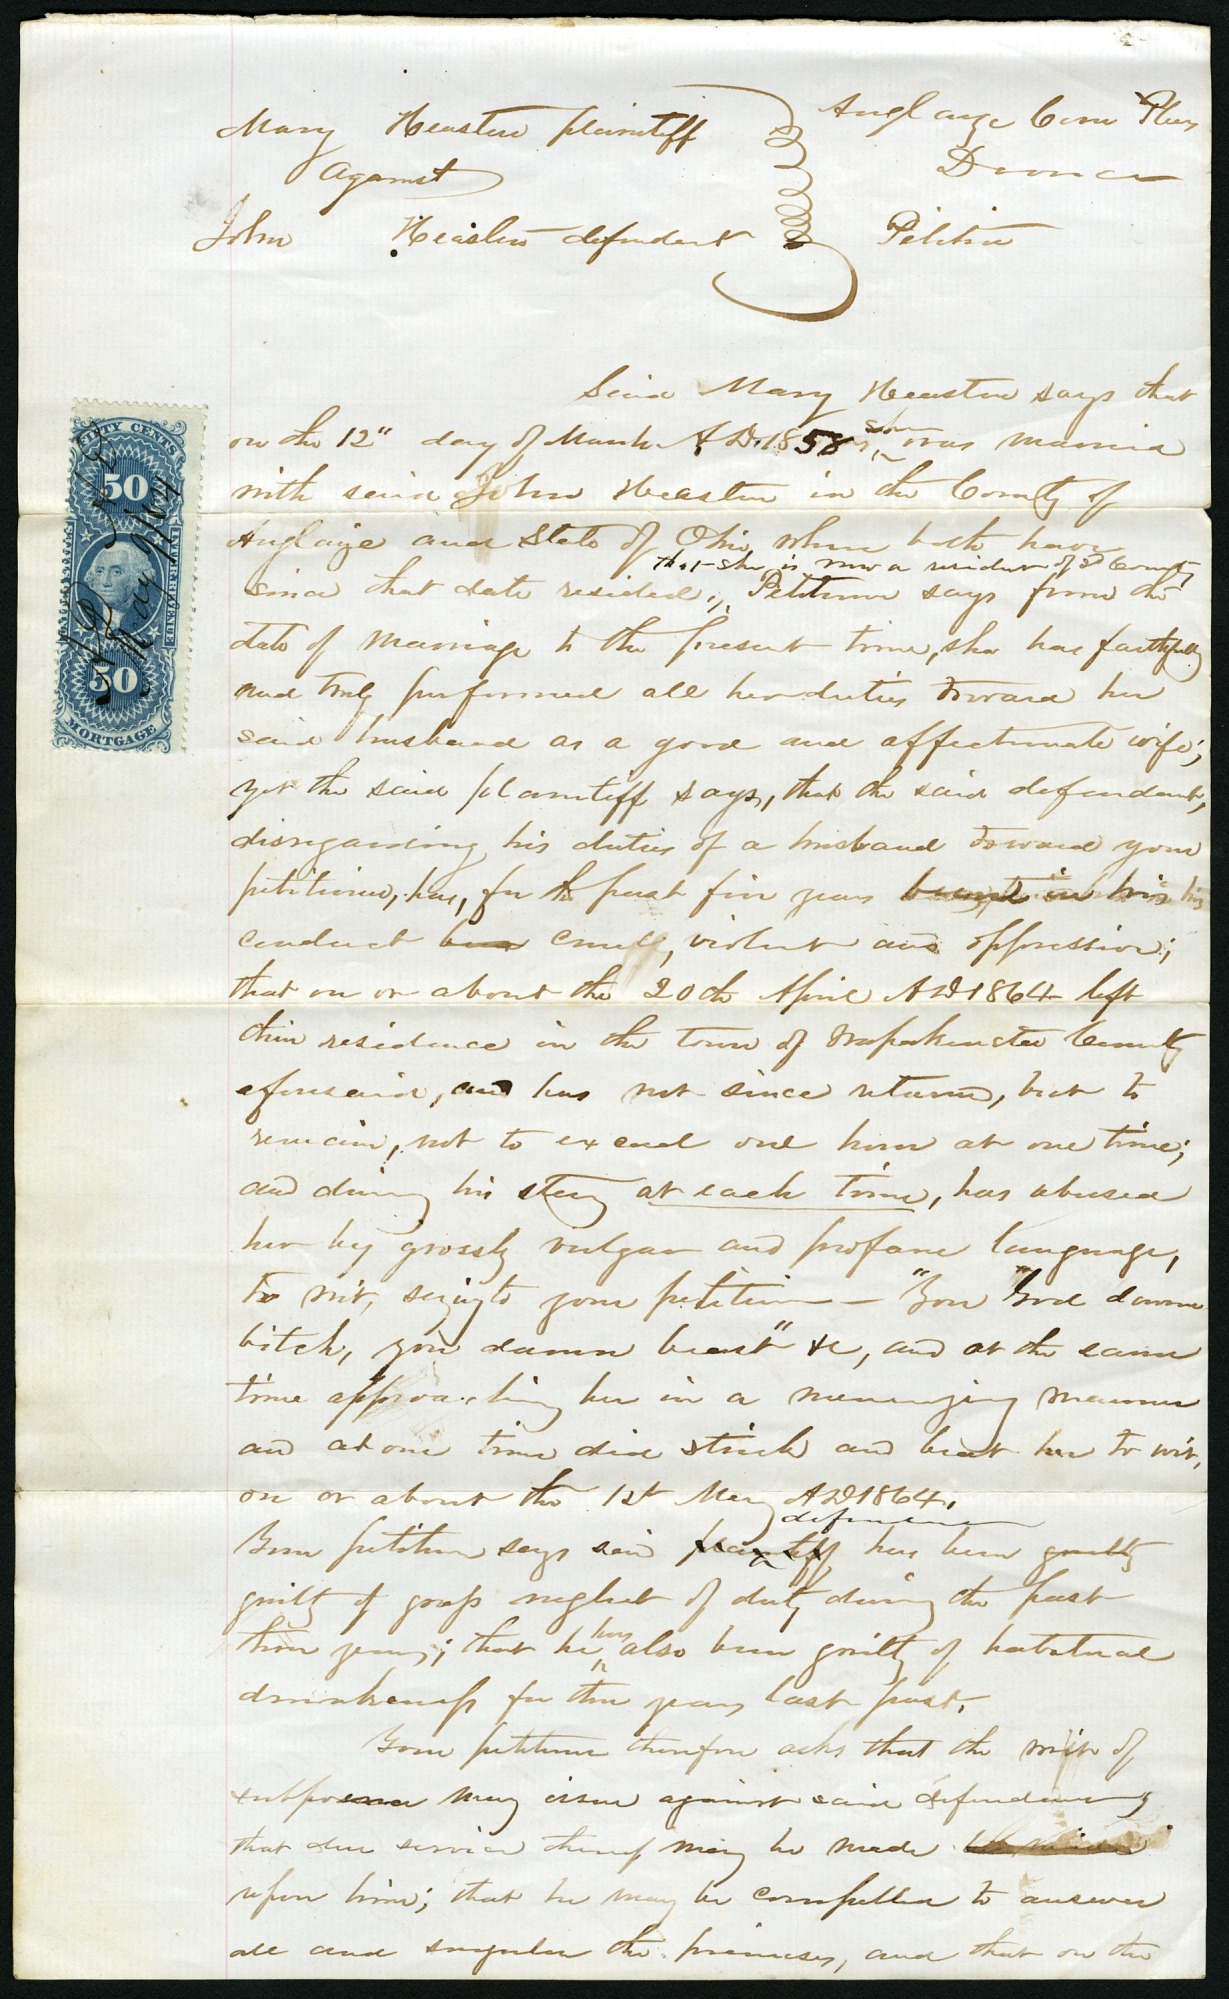 Mary Heaston plaintiff
against
John Heaston defendant
Auglaize Com Pleas
Divorce
Petition
Said Mary Heaston says that
on the 12" day of March AD. 1858 she was married
with said John Heaston in the County of
Auglaize and State of Ohio, where both have
that she is now a resident of sd County
since that date resided; Petitioner says from the
date of marriage to the present time, she has faithfully
and truly performed all her duties toward her
said husband as a good and affectionate wife;
yet the said plaintiff says, that the said defendant,
disregarding his duties of a husband toward your
petitioner, has, for the past five years in his his
conduct been cruel, violent and oppressive;
that on or about the 20th April AD 1864 left
their residence in the town of Wapakoneta County
aforesaid, and has not since returned, but to
remain, not to exceed one hour at one time;
and during his stay at each time, has abused
her by grossly vulgar and profane language,
to wit, saying to your petitioner — "You God damn
bitch, you damn beast" &c, and at the same
time approaching her in a menacing manner
and at one time did strike and beat her to wit,
on or about the 1st May AD 1864.
defendant
Your petitioner says said plaintiff has been guilty
guilty of gross neglect of duty during the past
three years; that he has also been guilty of habitual
drunkenness for three years last past.
Your petitioner therefore asks that the writ of
subpoena may issue against said defendant,
that due service thereof may be made
upon him; that he may be compelled to answer
all and singular the premises, and that on the
FIFTY CENTS
50
INTER. REVENUE
50
MORTGAGE
May 9/64